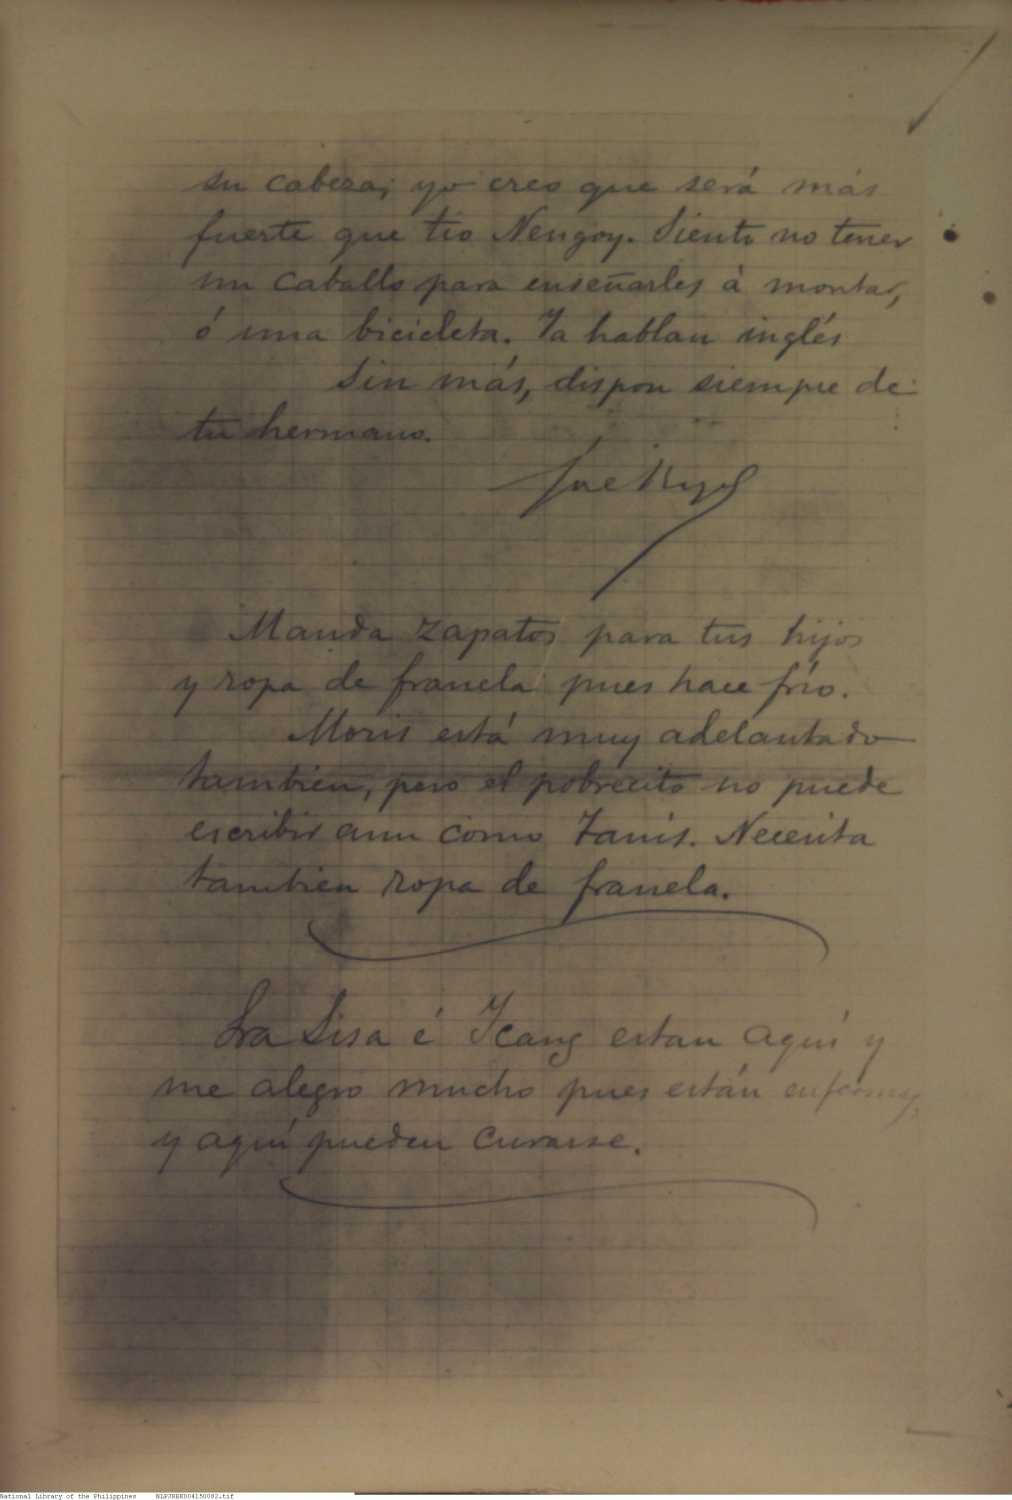 su cabeza; yo creo que será más
fuerte que tio Nengoy. Siento no tener
un caballo para enseñarles á montar,
ó una bicicleta. Ya hablan inglés
Sin más, dispon siempre de
tu hermano.
José Rizal
Manda zapatos para tus hijos
y ropa de franela pues hace frío.
Moris está muy adelantado
tambien, pero el pobrecito no puede
escribir aun como Tanis. Necesita
tambien ropa de franela.
Sra Sisa é Icang estan aquí y
me alegro mucho pues están enfermas,
y aquí pueden curarse.
National Library of the Philippines NLPJRER004150082.tif